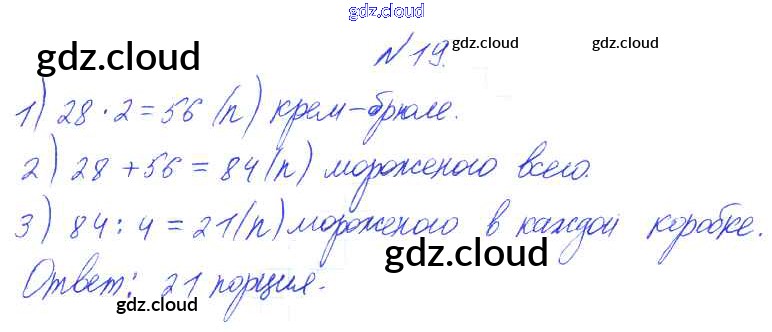 gdz.cloud
gdz.cloud
№19.
gdz.cloud
gdz.cloud
1) 28 · 2 = 56 (п) крем-брюле.
2) 28 + 56 = 84 (п) мороженого всего.
3) 84 : 4 = 21 (п) мороженого в каждой коробке.
gdz.cloud
Ответ: 21 порция.
gdz.cloud